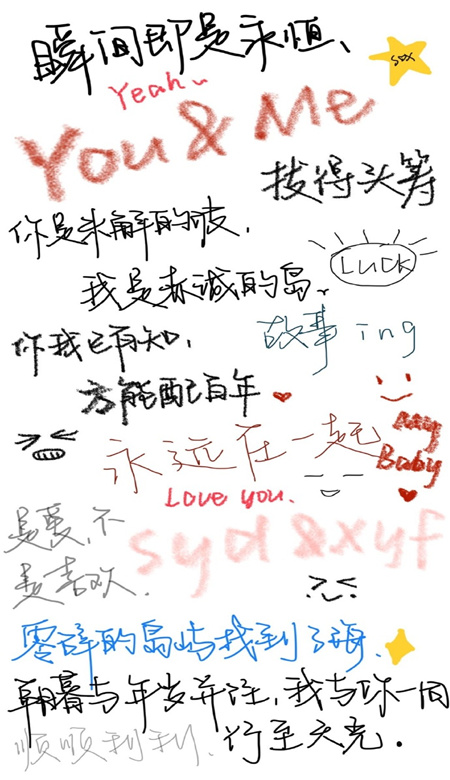 瞬间即是永恒、
sox
Yeah~
You & Me
拔得头筹
你是未解的波,
LUCK
我是赤诚的岛、
故事 ing
你我已有知,
方能配百年
永远在一起
My
Baby
Love you.
是爱,不
是喜欢.
syd&xyf
零碎的岛屿找到了海、
朝暮与年岁并往,我与你一同
顺顺利利、行至天光.